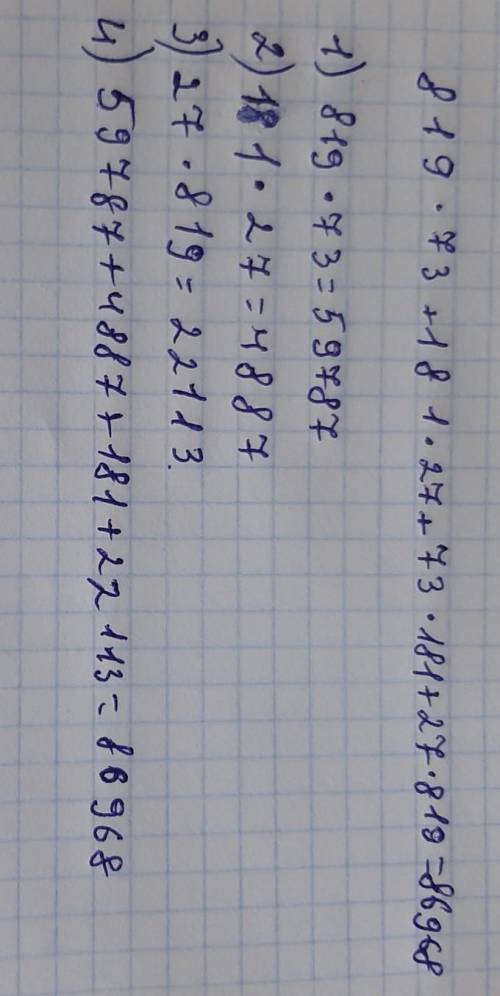 819 · 73 + 181 · 27 + 73 · 181 + 27 · 819 = 86968
1) 819 · 73 = 59787
2) 181 · 27 = 4887
3) 27 · 819 = 22113.
4) 59787 + 4887 + 181 + 22113 = 86968